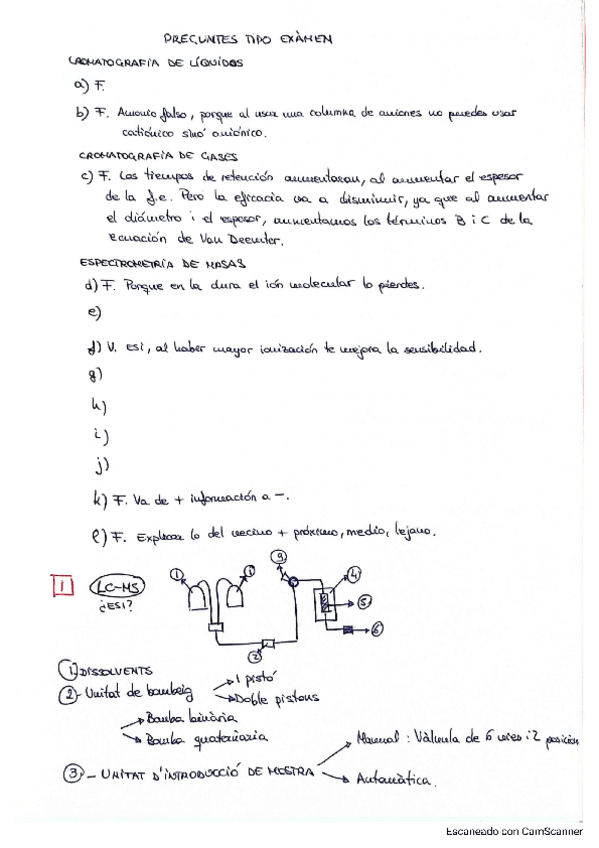 PREGUNTES TIPO EXÀMEN
CROMATOGRAFÍA DE LÍQUIDOS
a) F.
b) F. Amonio falso, porque al usar una columna de aniones no puedes usar
catiónico sinó aniónico.
CROMATOGRAFÍA DE GASES
c) F. Los tiempos de retención aumentaran, al aumentar el espesor
de la f.e. Pero la eficacia va a disminuir, ya que al aumentar
el diámetro i el espesor, aumentamos los términos B i C de la
ecuación de Van Deemter.
ESPECTROMETRÍA DE MASAS
d) F. Porque en la dura el ión molecular lo pierdes.
e)
f) V. ESI, al haber mayor ionización te mejora la sensibilidad.
g)
h)
i)
j)
k) F. Va de + información a -.
l) F. Explicar lo del vecino + próximo, medio, lejano.
1 LC-MS
¿ESI?
1 1 9 4
5
6
2
1 DISSOLVENTS
2 - Unitat de bombeig → 1 pistó
→ Doble pistons
→ Bomba binària
→ Bomba quaternaria
3 - UNITAT D'INTRODUCCIÓ DE MOSTRA → Manual: Vàlvula de 6 vies i 2 posicion
→ Automàtica.
Escaneado con CamScanner